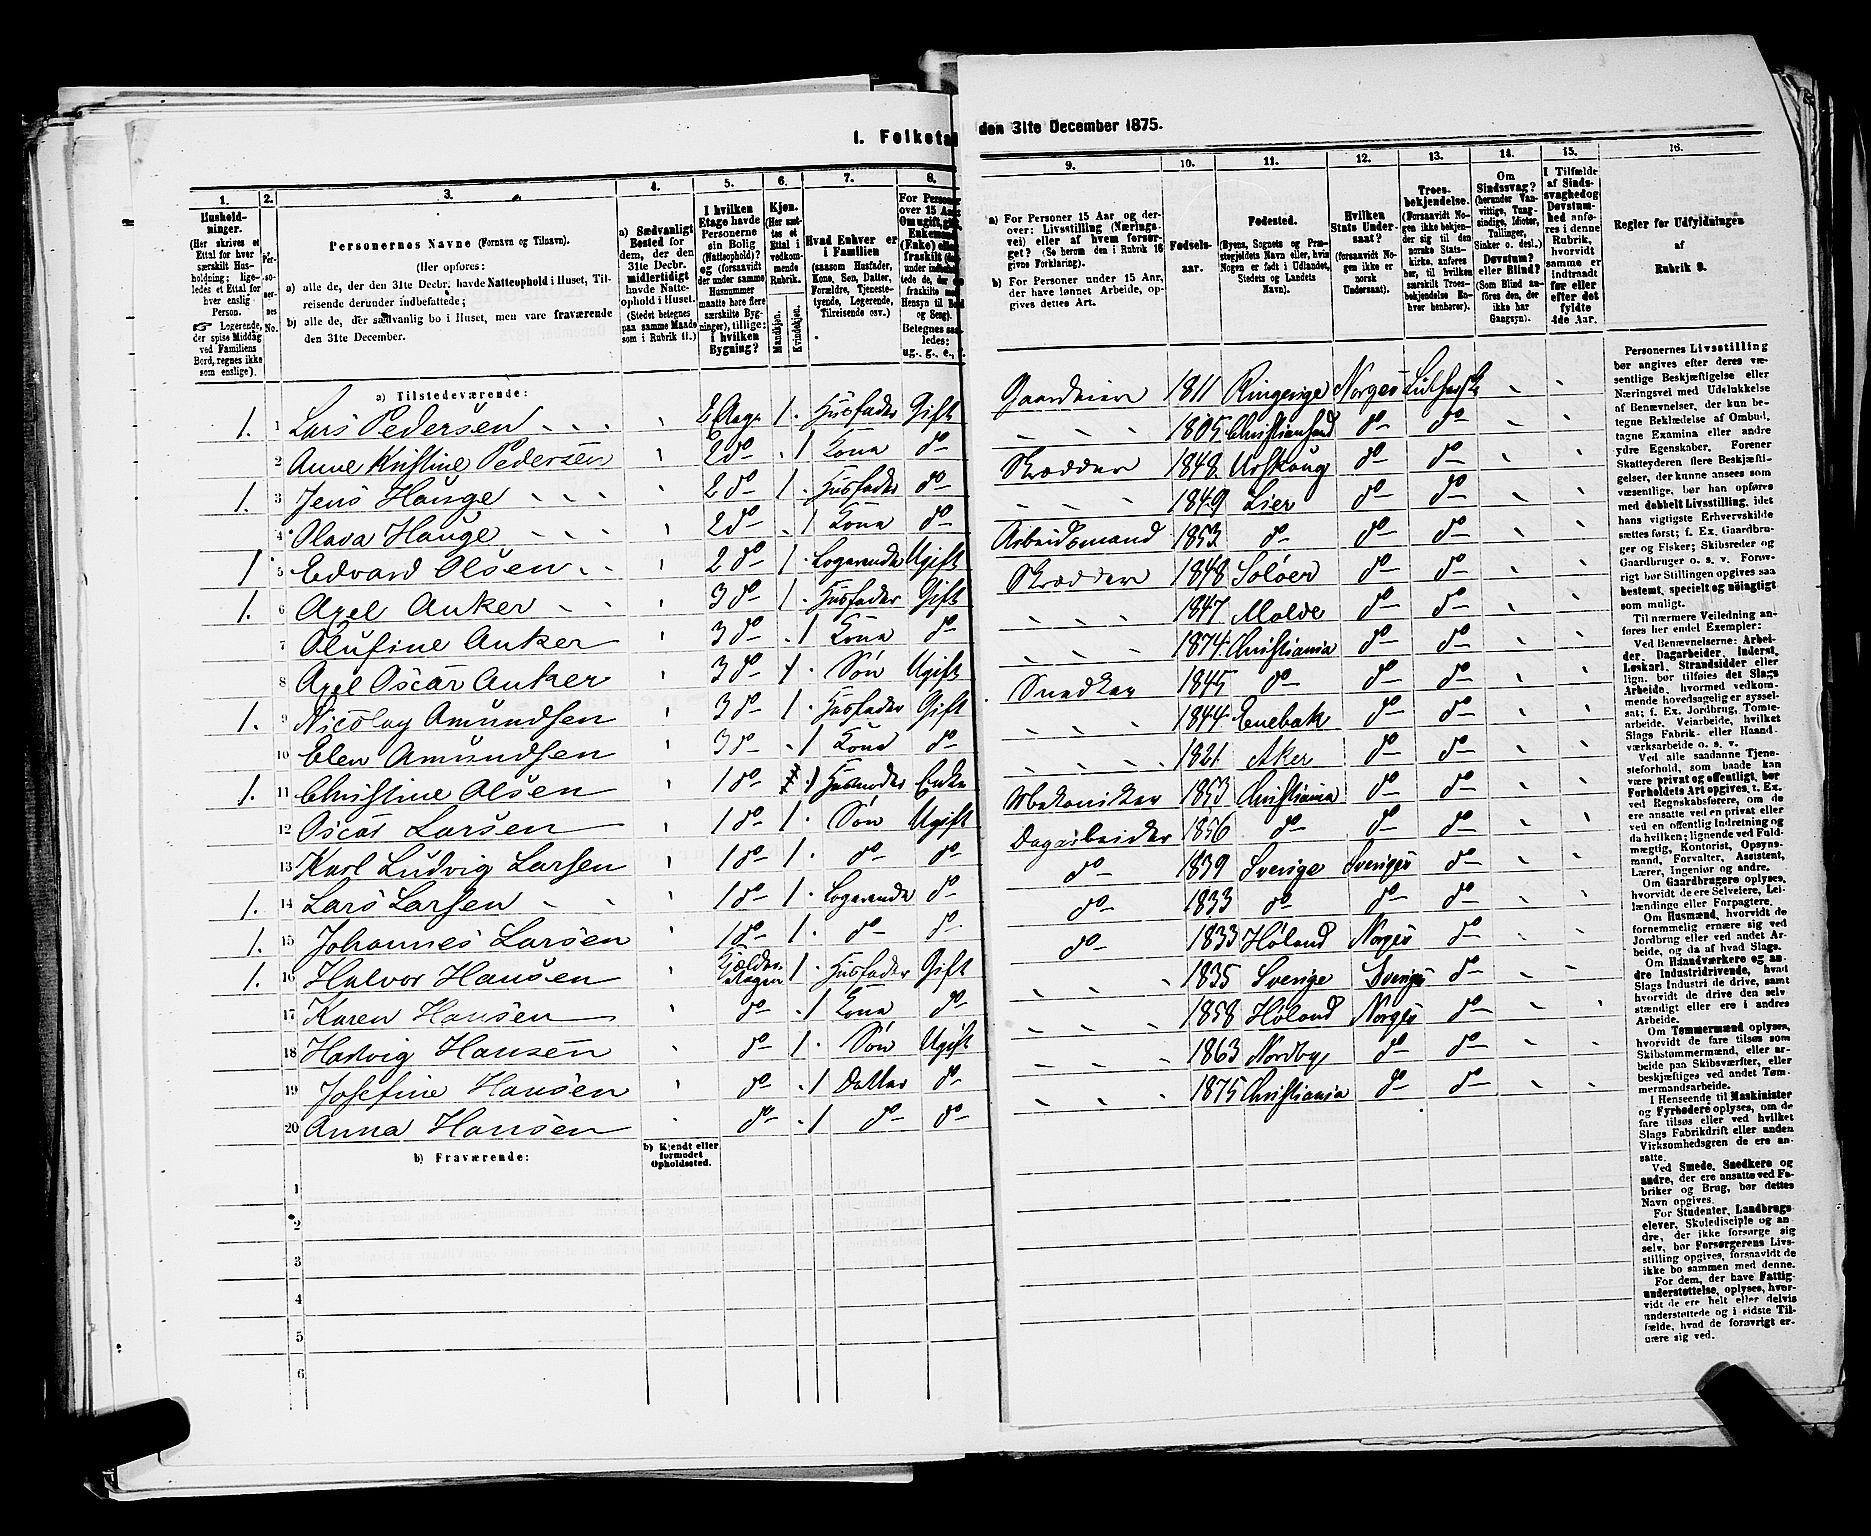 1. Folketa
den 31te December 1875.
1.
2.
3.
4.
5.
6.
7.
8.
9.
10.
11.
12.
13.
14.
15.
16.
Hushold-
ninger.
(Her skrives et
Ettal for hver
særskilt Hus-
holdning; lige-
ledes et Ettal for
hver enslig
Person.
☞ Logerende,
der spise Middag
ved Familiens
Bord, regnes ikke
som enslige).
Per-
so-
ner-
nes
No.
Personernes Navne (Fornavn og Tilnavn).
(Her opføres:
a) alle de, der den 31te Decbr. havde Natteophold i Huset, Til-
reisende derunder indbefattede;
b) alle de, der sædvanlig bo i Huset, men vare fraværende
den 31te December.
a) Sædvanligt
Bosted for
dem, der den
31te Decbr.
midlertidigt
havde Natte-
ophold i Huset.
(Stedet betegnes
paa samme Maade
som i Rubrik 11.)
I hvilken
Etage havde
Personerne
sin Bolig
(Natteophold)?
og (forsaavidt
der under samme
Husnummer
maatte høre flere
særskilte Byg-
ninger), tillige:
i hvilken
Bygning?
Kjøn.
(Her sæt-
tes et
Ettal i
vedkom-
mende
Rubrik.
Mandkjøn.
Kvindekjøn.
Hvad Enhver er
i Familien
(saasom Husfader,
Kone, Søn, Datter,
Forældre, Tjeneste-
tyende, Logerende,
Tilreisende osv.)
For Personer
over 15 Aar:
Om ugift, gift,
Enkemand
(Enke) eller
fraskilt
Betegnes saa-
ledes:
ug., g., e., f.
a) For Personer 15 Aar og der-
over: Livsstilling (Nærings-
vei) eller af hvem forsør-
get? (Se herom den i Rubrik 16
givne Forklaring).
b) For Personer under 15 Aar,
der have lønnet Arbeide, op-
gives dettes Art.
Fødsels-
aar.
Fødested.
(Byens, Sognets og Præ-
stegjeldets Navn eller, hvis
Nogen er født i Udlandet,
Stedets og Landets
Navn).
Hvilken
Stats Under-
saat?
(forsaavidt No-
gen ikke er
norsk
Undersaat).
Troes-
bekjendelse.
(Forsaavidt No-
gen ikke bekjen-
der sig til den
norske Stats-
kirke, anføres
her, til hvilken
særskilt Troes-
bekjendelse En-
hver henhører).
Om
Sindssvag?
(herunder Van-
vittige, Tung-
sindige, Idioter,
Tullinger,
Sinker o. desl.)
Døvstum?
eller Blind?
(Som Blind an-
føres den, der
ikke har
Gangsyn).
I Tilfælde
af Sinds-
svaghed og
Døvstum-
hed anfø-
res i denne
Rubrik,
hvorvidt
samme er
indtraadt
før eller
efter det
fyldte
4de Aar.
Regler for Udfyldningen
af
Rubrik 9.
a) Tilstedeværende:
1. 1 Lars Pedersen 2 Etage 1 Husfader Gift Gaardeier 1811 Ringerige Norges Luthersk
2 Anne Kristine Pedersen 2 do 1 Kona do 1805 Christiansand do do
1. 3 Jens Hauge 2 do 1 Husfader do Skrædder 1848 Urskoug do do
4 Olava Hauge 2 do 1 Kona do 1849 Lier do do
1 5 Edvard Olsen 2 do 1 Logerende Ugift Arbeidsmand 1853 do do do
1. 6 Axel Anker 3 do 1 Husfader Gift Skrædder 1848 Soløer do do
7 Olufine Anker 3 do 1 Kona do 1847 Molde do do
8 Axel Oscar Anker 3 do 1 Søn Ugift 1874 Christiania do do
1. 9 Nicolay Amundsen 3 do 1 Husfader Gift Snedker 1845 do do do
10 Elen Amundsen 3 do 1 Kona do 1844 Enebak do do
1. 11 Christine Olsen 1 do 1 Husmoder Enke 1821 Aker do do
12 Oscar Larsen 1 do 1 Søn Ugift Mekaniker 1853 Christiania do do
13 Karl Ludvig Larsen 1 do 1 do do Dagarbeider 1856 do do do
1. 14 Lars Larsen 1 do 1 Logerende do do 1839 Sverige Sveriges do
1. 15 Johannes Larsen 1 do 1 do do do 1833 do do do
1. 16 Halvor Hansen Kjælder Etagen 1 Husfader Gift do 1833 Høland Norges do
17 Karen Hansen do 1 Kona do 1835 Sverige Sveriges do
18 Hartvig Hansen do 1 Søn Ugift 1858 Høland Norges do
19 Josefine Hansen do 1 Datter do 1863 Nordby do do
20 Anna Hansen do 1 do do 1875 Christiania do do
b) Fraværende:
b) Kjendt eller
formodet
Opholdssted.
1
2
3
4
5
6
Personernes Livsstilling
bør angives efter deres væ-
sentlige Beskjæftigelse eller
Næringsvei med Udelukkelse
af Benævnelser, der kun be-
tegne Beklædelse af Ombud,
tagne Examina eller andre
ydre Egenskaber. Forener
Skatteyderen flere Beskjæfti-
gelser, der kunne ansees som
væsentlige, bør han opføres
med dobbelt Livsstilling, idet
hans vigtigste Erhvervskilde
sættes først; f. Ex. Gaardbru-
ger og Fisker; Skibsreder og
Gaardbruger o. s. v. Forøv-
rigt bør Stillingen opgives saa
bestemt, specielt og nøiagtigt
som muligt.
Til nærmere Veiledning an-
føres her endel Exempler:
Ved Benævnelserne: Arbei-
der, Dagarbeider, Inderst,
Løskarl, Strandsidder eller
lign. bør tilføies det Slags
Arbeide, hvormed vedkom-
mende hovedsagelig er syssel-
sat; f. Ex. Jordbrug, Tomte-
arbeide, Veiarbeide, hvilket
Slags Fabrik- eller Haand-
værksarbeide o. s. v.
Ved alle saadanne Tjene-
steforhold, som baade kan
være privat og offentligt, bør
Forholdets Art opgives, t. Ex.
ved Regnskabsførere, om de
ere ansatte ved en privat eller
ved en offentlig Indretning og
da hvilken; lignende ved Fuld-
mægtig, Kontorist, Opsyns-
mand, Forvalter, Assistent,
Lærer, Ingeniør og andre.
Om Gaardbrugere oplyses,
hvorvidt de ere Selveiere, Lei-
lændinge eller Forpagtere.
Om Husmænd, hvorvidt de
fornemmelig ernære sig ved
Jordbrug eller ved andet Ar-
beide, og da af hvad Slags.
Om Haandværkere og an-
dre Industridrivende, hvad
Slags Industri de drive, samt
hvorvidt de drive den selv-
stændigt eller ere i andres
Arbeide.
Om Tømmermænd oplyses,
hvorvidt de fare tilsøs som
Skibstømmermænd, eller ar-
beide paa Skibsværfter, eller
beskjæftiges ved andet Tøm-
mermandsarbeide.
I Henseende til Maskinister
og Fyrbødere oplyses, om de
fare tilsøs eller ved hvilket
Slags Fabrikdrift eller anden
Virksomhedsgren de ere an-
satte.
Ved Smede, Snedkere og
andre, der ere ansatte ved Fa-
briker og Brug, bør dettes
Navn opgives.
For Studenter, Landbrugs-
elever, Skoledisciple og an-
dre, der ikke forsørge sig
selv, bør Forsørgerens Livs-
stilling opgives, forsaavidt de
ikke bo sammen med denne.
For dem, der have Fattig-
understøttelse, oplyses, hvor-
vidt de ere helt eller delvis
understøttede og i sidste Til-
fælde, hvad de forøvrigt er-
nære sig ved.